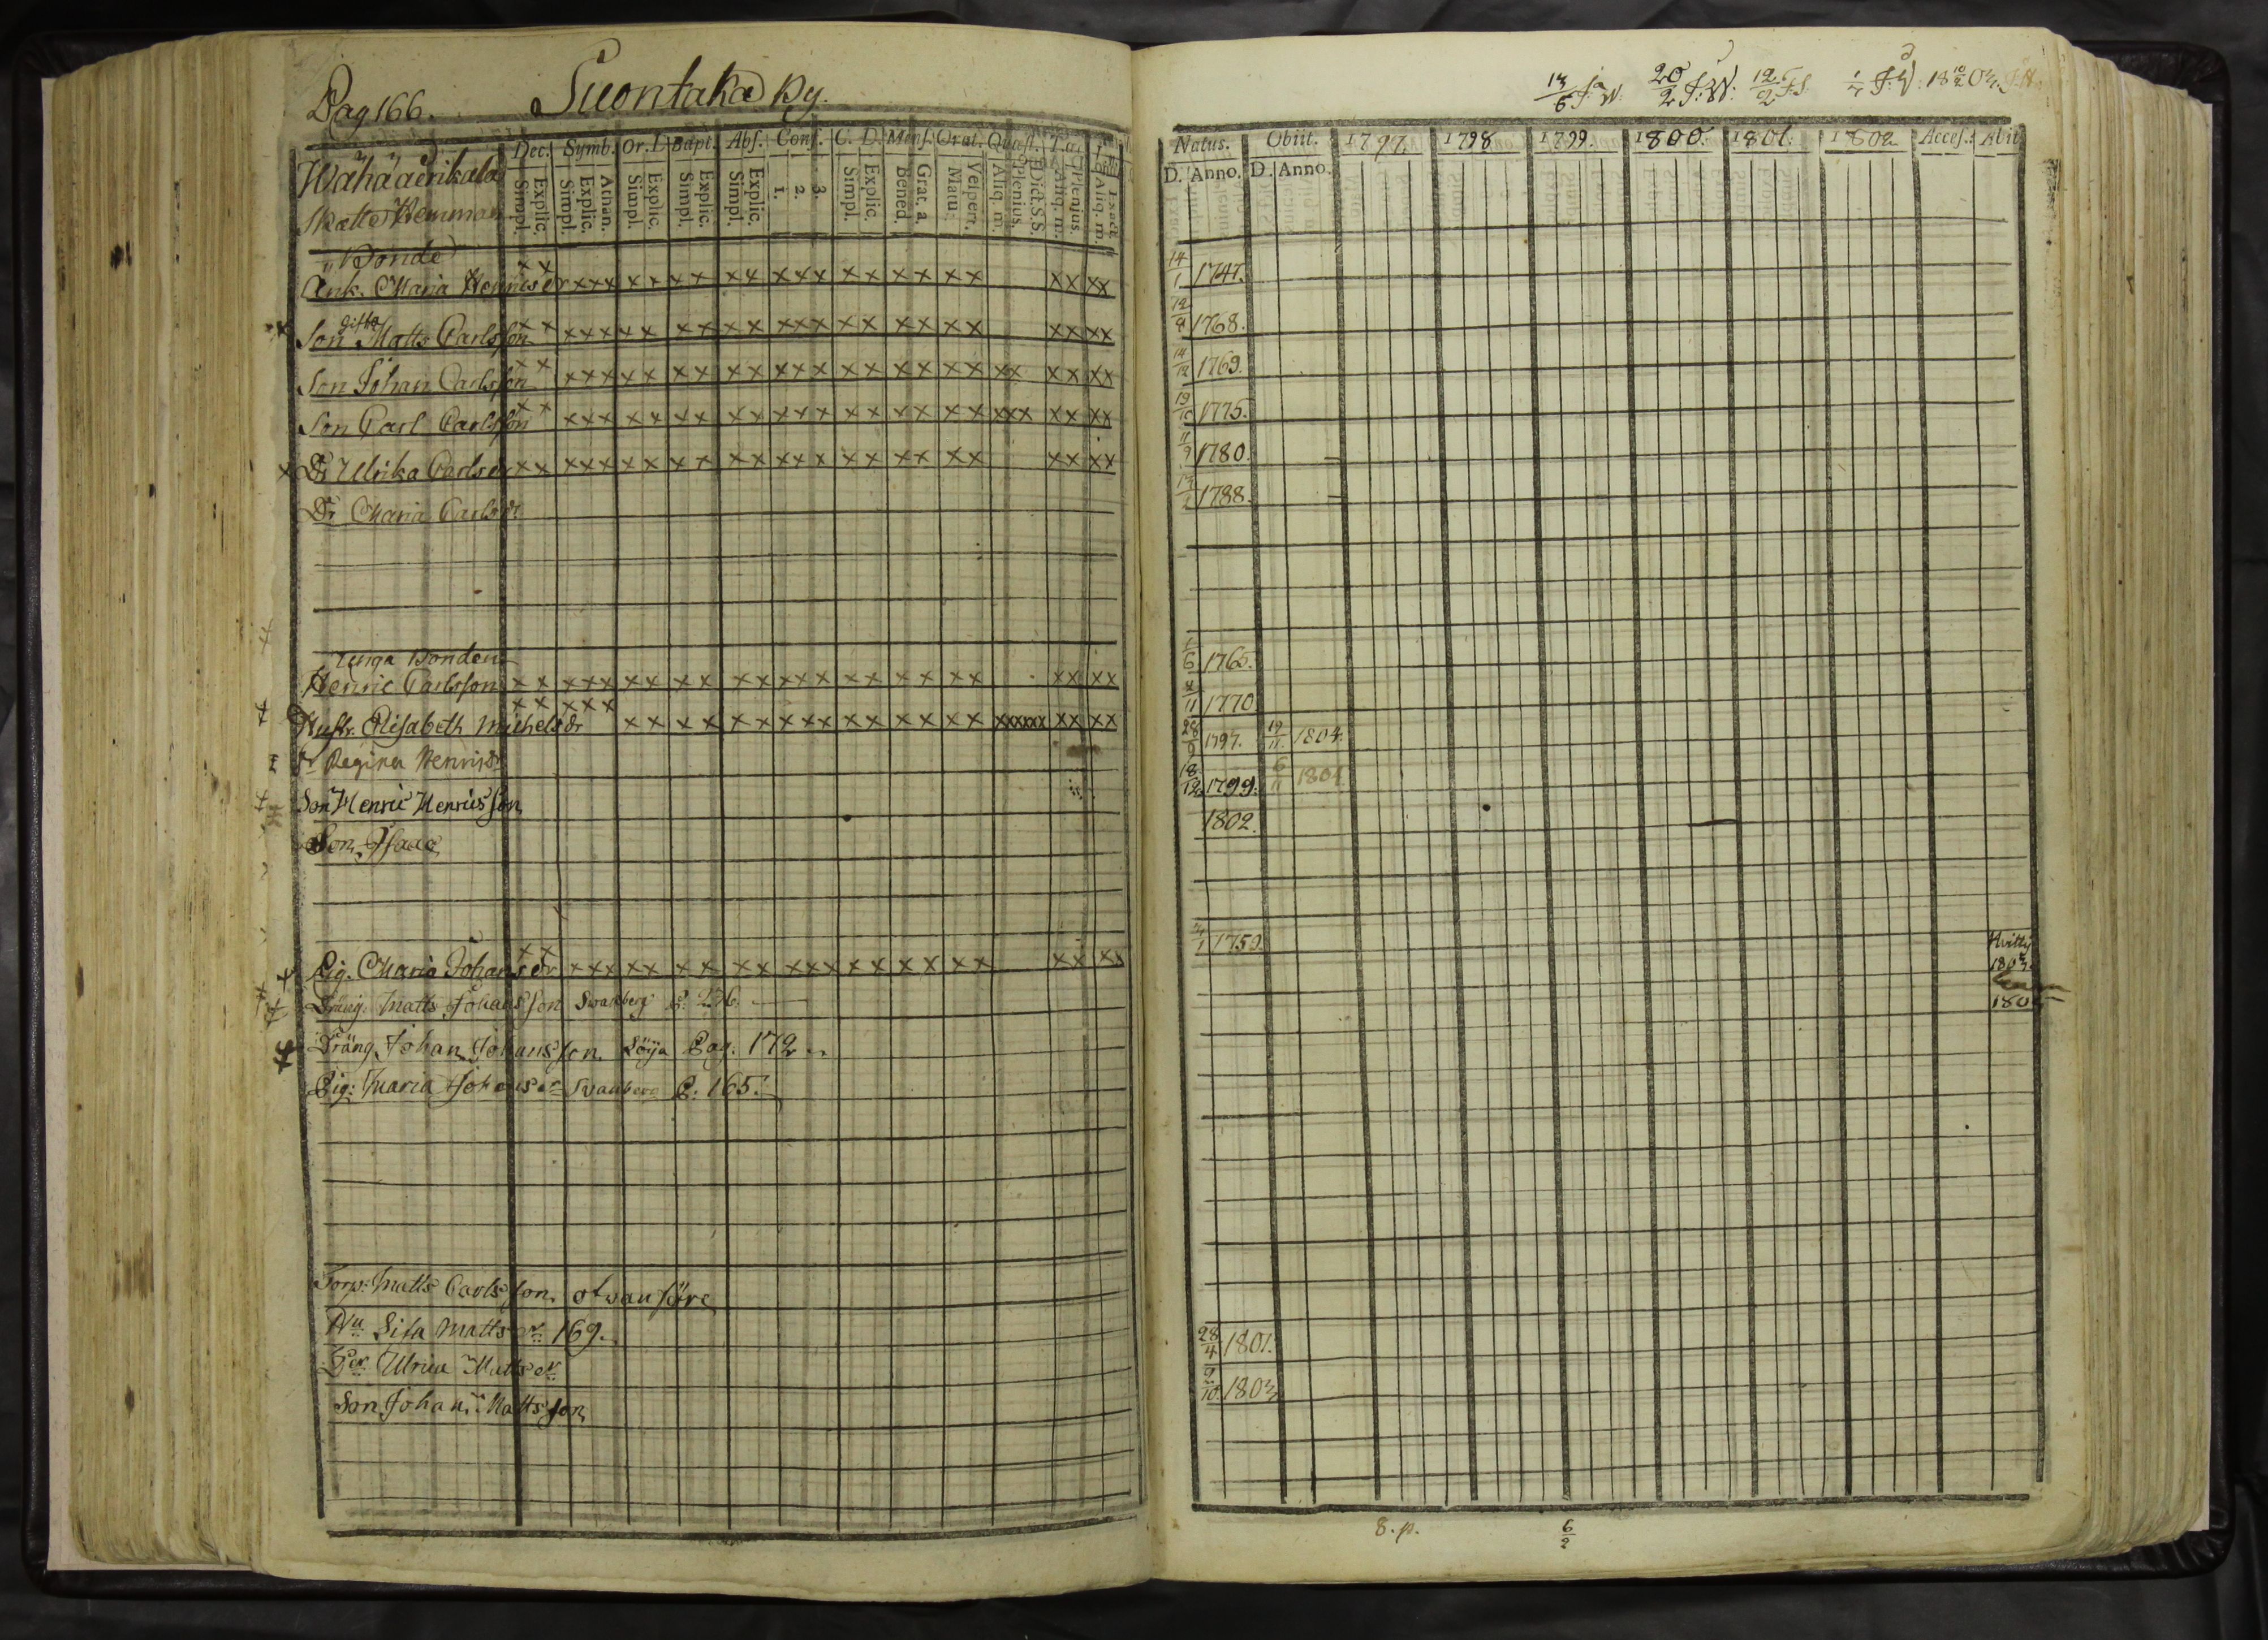 Pag 166. Suontaka By.
Wähääerikala
Skatte Hemman
Dec. Symb. Or. D. Bapt. Abs. Conf. C. D. Mens. Orat. Quæst.
Explic. Simpl. Athan. Explic. Simpl. Explic. Simpl. Explic. Simpl. Explic. Simpl. 3. 2. 1. Explic. Simpl. Grat. a. Bened. Vespert. Matut. Dict. S.S. Plenius. Aliq. m. Plenius. Aliq. m. Exacte Aliq. m.
Bonde
Enk. Maria Henricsdr xx xxx xx xx xx xxx xx xx xx xx xx
gifta
Son Matts Carlsson xx xxx xx xx xx xxx xx xx xx xx xx
Son Johan Carlsson xx xxx xx xx xx xxx xx xx xx xx xx xx
Son Carl Carlsson xx xxx xx xx xx xxx xx xx xx xxx xx xx
Dr Ulrika Carlsdr xx xxx xx xx xx xxx xx xx xx xx xx
Dr Maria Carlsdr
unga Bonden
Henric Carlsson xx xxx xx xx xx xxx xx xx xx xx xx
Hustr. Elisabeth Michelsdr xx xxx xx xx xx xxx xx xx xx xxxxxx xx xx
Dr Regina Henrisdr
Son Henric Henricsson
Son Isaac
Pig. Maria Johansdr xx xxx xx xx xx xxx xx xx xx xx xx
Dräng. Matts Johansson Swanberg P. 276.
Dräng Johan Johansson Löija Pag. 172
Pig: Maria Johansdr Swanberg P. 165.
Torp: Matts Carlsson ofwanföre
Hu Lisa Mattsdr 169.
Dr Ulrica Mattsdr
Son Johan Mattsson
20/2 J.W. 12/2
Natus. Obiit. 1797. 1798 1799. 1800. 1801. 1802 Acces. Abit
D. Anno. D. Anno.
14/1 1747.
1768.
14/12 1769.
19/10 1775.
11/9 1780.
1788.
1765.
1770
28/9 1797. 19/11 1804.
18/12 1799. 6/11 1804.
1802.
1750.
1801.
28/4
9/10 1803
8. p. 6/2